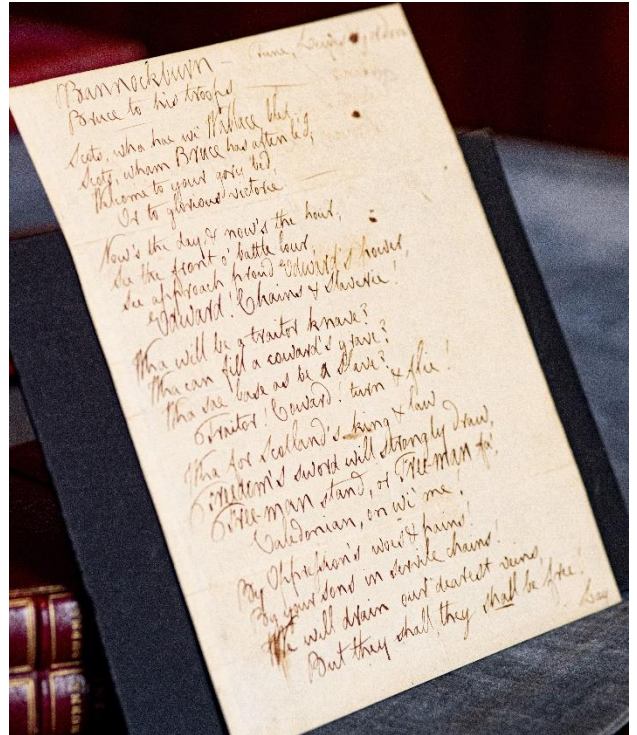 Bannockburn — Tune, Lewis Gordon
Bruce to his troops
Scots, wha hae wi' Wallace bled,
Scots, wham Bruce has aften led,
Welcome to your gory bed,
Or to glorious victorie
Now's the day & now's the hour;
See the front o' battle lour
See approach proud Edward's power,
Edward! Chains & Slaverie!
Wha will be a traitor knave?
Wha can fill a coward's grave?
Wha sae base as be a Slave?
Traitor! Coward! turn & flie!
Wha for Scotland's king & law
Freedom's sword will strongly draw,
Free-man stand, or Free-man fa'
Caledonian, on wi' me!
By Oppression's woes & pains!
By your sons in servile chains!
We will drain our dearest veins,
But they shall, they shall be free!
Lay